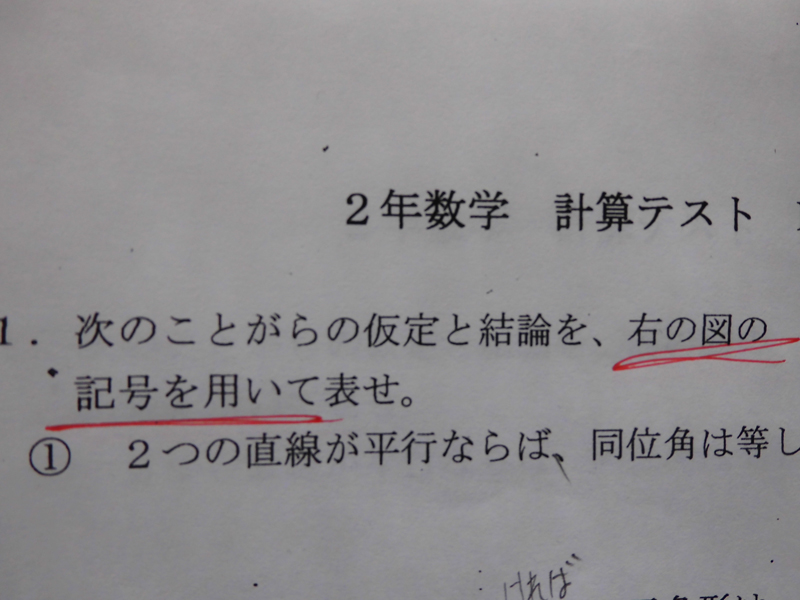 2年数学 計算テスト
1. 次のことがらの仮定と結論を、右の図の
記号を用いて表せ。
① 2つの直線が平行ならば、同位角は等し
ければ